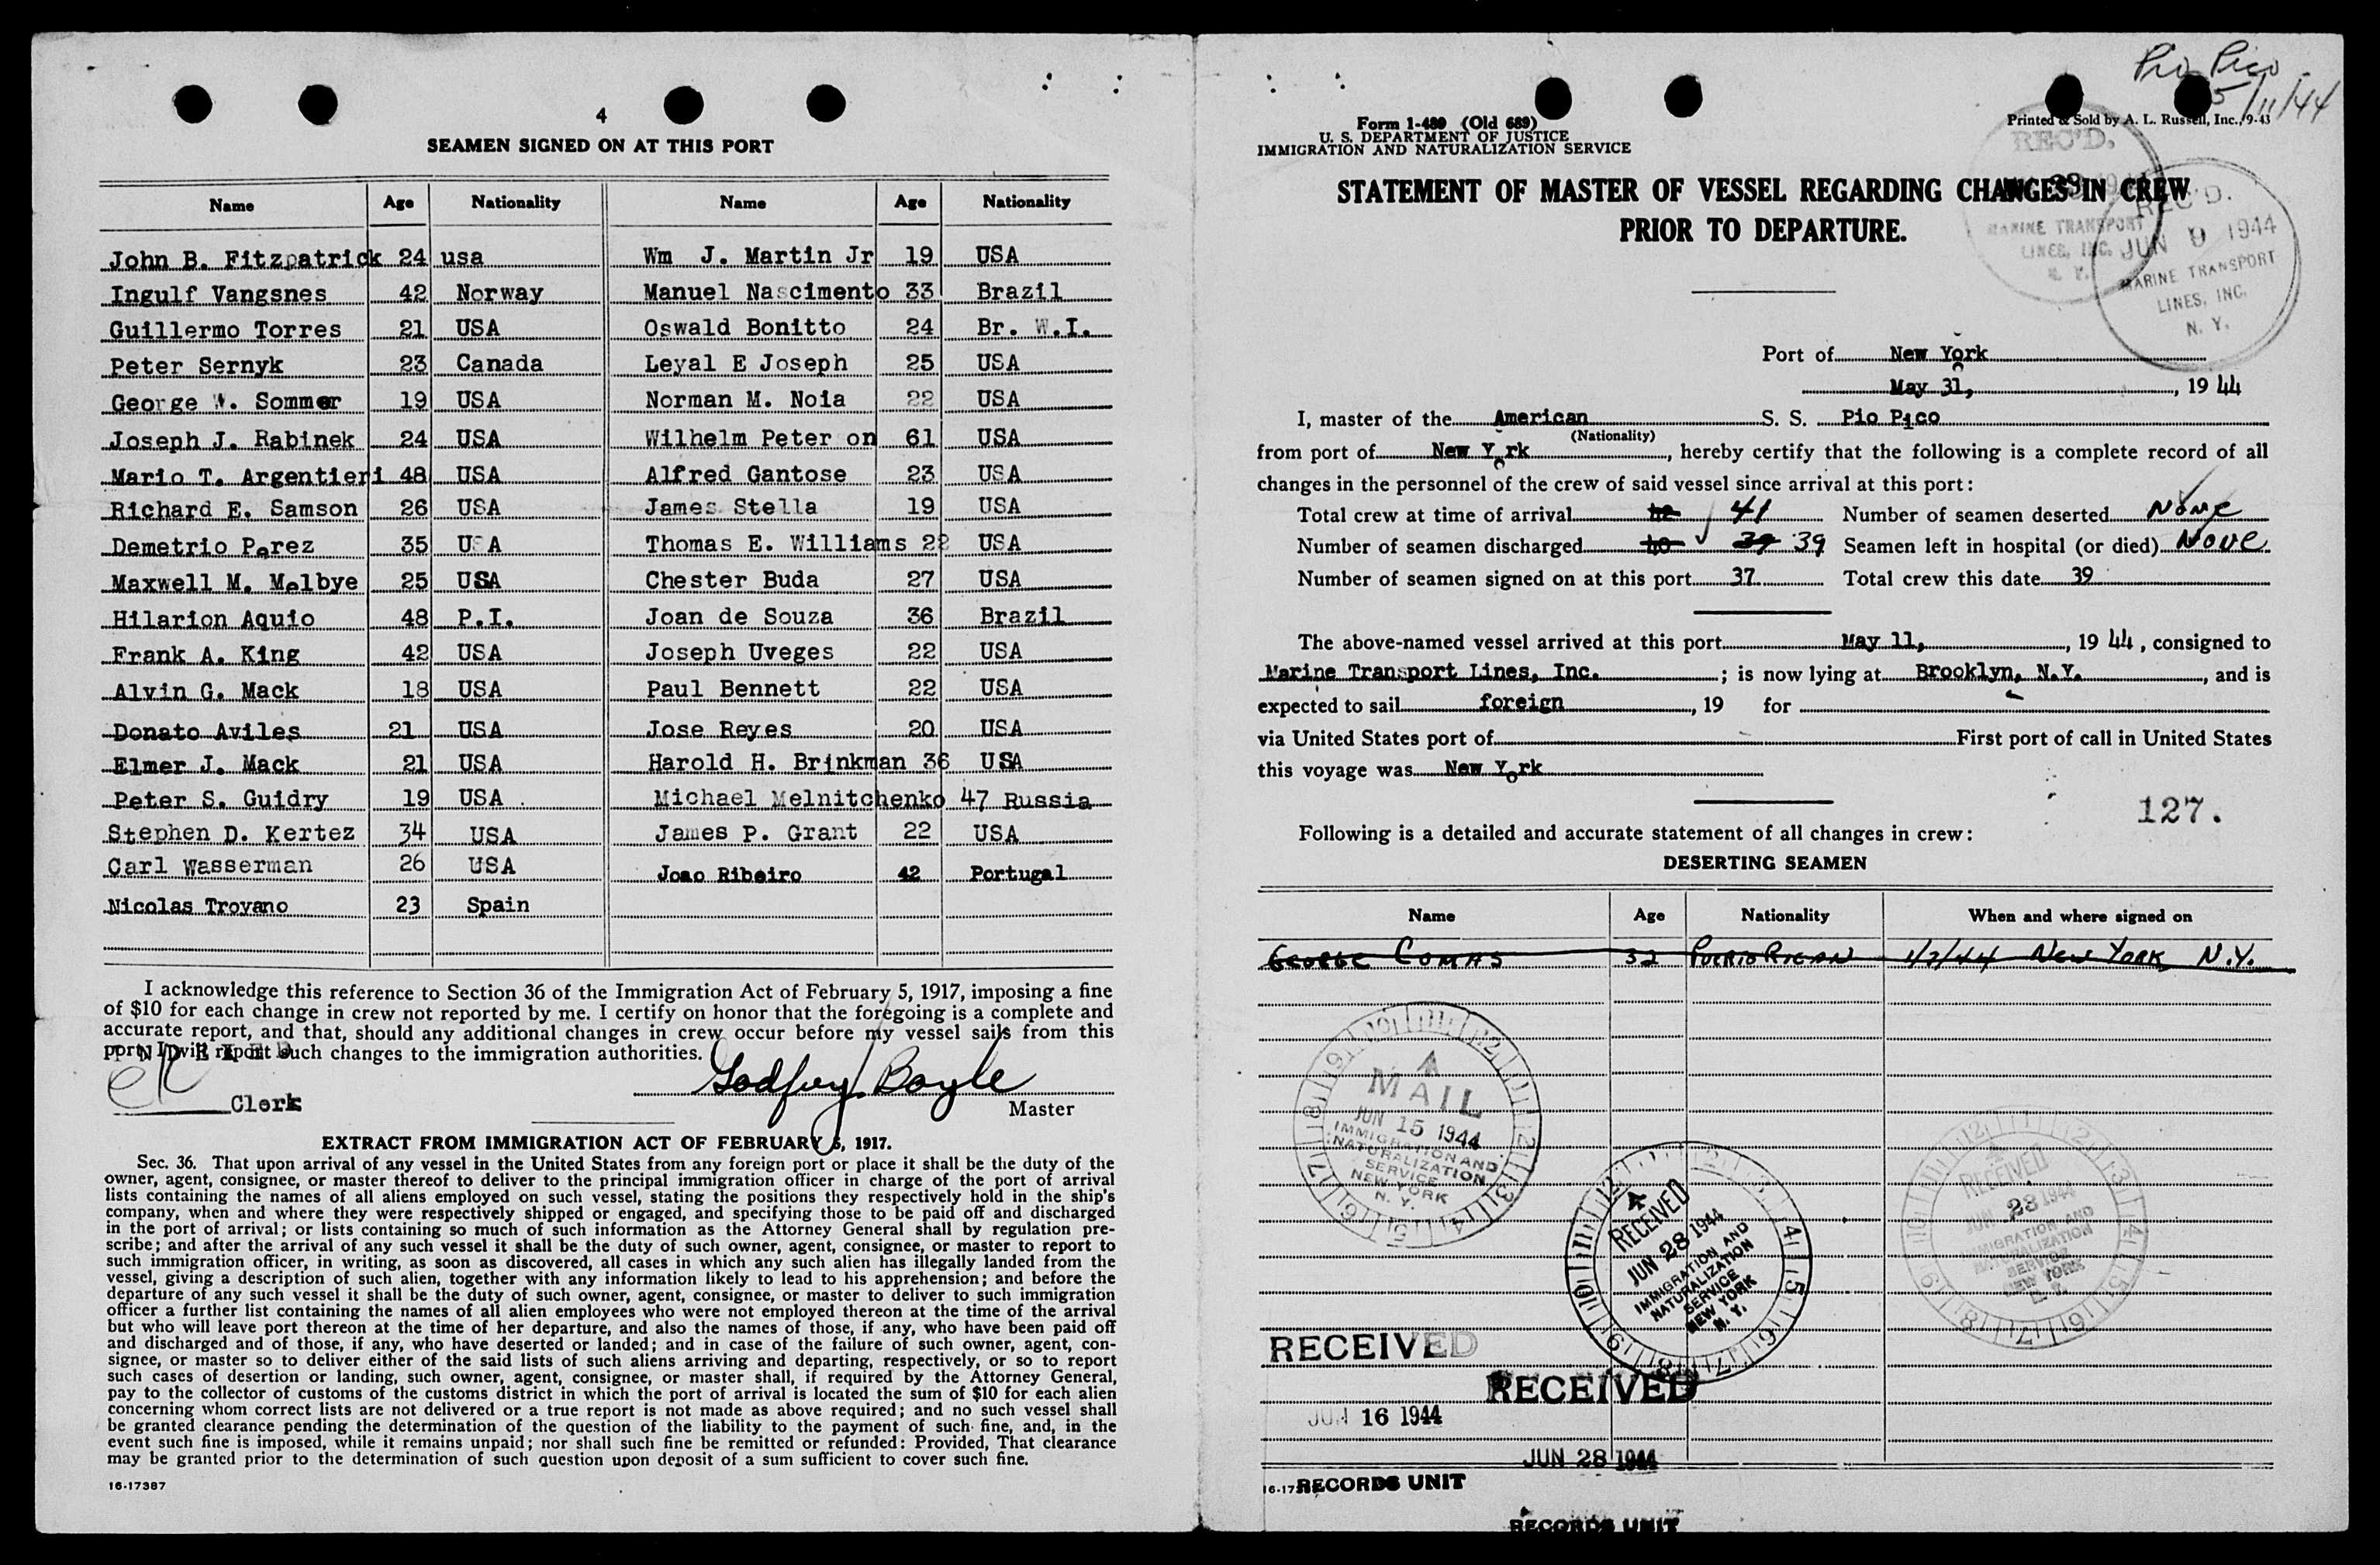 4
SEAMEN SIGNED ON AT THIS PORT
Name Age Nationality Name Age Nationality
John B. Fitzpatrick 24 usa Wm J. Martin Jr 19 USA
Ingulf Vangsnes 42 Norway Manuel Nascimento 33 Brazil
Guillermo Torres 21 USA Oswald Bonitto 24 Br. W.I.
Peter Sernyk 23 Canada Leyal E Joseph 25 USA
George W. Sommer 19 USA Norman M. Noia 22 USA
Joseph J. Rabinek 24 USA Wilhelm Peter on 61 USA
Mario T. Argentieri 48 USA Alfred Gantose 23 USA
Richard E. Samson 26 USA James Stella 19 USA
Demetrio Perez 35 USA Thomas E. Williams 22 USA
Maxwell M. Melbye 25 USA Chester Buda 27 USA
Hilarion Aquio 48 P.I. Joan de Souza 36 Brazil
Frank A. King 42 USA Joseph Uveges 22 USA
Alvin G. Mack 18 USA Paul Bennett 22 USA
Donato Aviles 21 USA Jose Reyes 20 USA
Elmer J. Mack 21 USA Harold H. Brinkman 36 USA
Peter S. Guidry 19 USA . Michael Melnitchenko 47 Russia
Stephen D. Kertez 34 USA James P. Grant 22 USA
Carl Wasserman 26 USA Joao Ribeiro 42 Portugal
Nicolas Troyano 23 Spain
I acknowledge this reference to Section 36 of the Immigration Act of February 5, 1917, imposing a fine
of $10 for each change in crew not reported by me. I certify on honor that the foregoing is a complete and
accurate report, and that, should any additional changes in crew occur before my vessel sails from this
port, I will report such changes to the immigration authorities.
Godfrey Boyle
Clerk
Master
EXTRACT FROM IMMIGRATION ACT OF FEBRUARY 5, 1917.
Sec. 36. That upon arrival of any vessel in the United States from any foreign port or place it shall be the duty of the
owner, agent, consignee, or master thereof to deliver to the principal immigration officer in charge of the port of arrival
lists containing the names of all aliens employed on such vessel, stating the positions they respectively hold in the ship's
company, when and where they were respectively shipped or engaged, and specifying those to be paid off and discharged
in the port of arrival; or lists containing so much of such information as the Attorney General shall by regulation pre-
scribe; and after the arrival of any such vessel it shall be the duty of such owner, agent, consignee, or master to report to
such immigration officer, in writing, as soon as discovered, all cases in which any such alien has illegally landed from the
vessel, giving a description of such alien, together with any information likely to lead to his apprehension; and before the
departure of any such vessel it shall be the duty of such owner, agent, consignee, or master to deliver to such immigration
officer a further list containing the names of all alien employees who were not employed thereon at the time of the arrival
but who will leave port thereon at the time of her departure, and also the names of those, if any, who have been paid off
and discharged and of those, if any, who have deserted or landed; and in case of the failure of such owner, agent, con-
signee, or master so to deliver either of the said lists of such aliens arriving and departing, respectively, or so to report
such cases of desertion or landing, such owner, agent, consignee, or master shall, if required by the Attorney General,
pay to the collector of customs of the customs district in which the port of arrival is located the sum of $10 for each alien
concerning whom correct lists are not delivered or a true report is not made as above required; and no such vessel shall
be granted clearance pending the determination of the question of the liability to the payment of such fine, and, in the
event such fine is imposed, while it remains unpaid; nor shall such fine be remitted or refunded: Provided, That clearance
may be granted prior to the determination of such question upon deposit of a sum sufficient to cover such fine.
16-17387
Pio Pico
5/11/44
Form 1-489 (Old 689)
U. S. DEPARTMENT OF JUSTICE
IMMIGRATION AND NATURALIZATION SERVICE
Printed & Sold by A. L. Russell, Inc., 9-43
STATEMENT OF MASTER OF VESSEL REGARDING CHANGES IN CREW
PRIOR TO DEPARTURE.
REC'D.
MARINE TRANSPORT
LINES, INC.
N. Y.
REC'D.
JUN 9 1944
MARINE TRANSPORT
LINES, INC.
N. Y.
Port of New York
May 31, , 19 44
I, master of the American S. S. Pio Pico
(Nationality)
from port of New York , hereby certify that the following is a complete record of all
changes in the personnel of the crew of said vessel since arrival at this port:
Total crew at time of arrival 42 41 Number of seamen deserted None
Number of seamen discharged 40 39 39 Seamen left in hospital (or died) None
Number of seamen signed on at this port 37 Total crew this date 39
The above-named vessel arrived at this port May 11, , 19 44, consigned to
Marine Transport Lines, Inc. ; is now lying at Brooklyn, N.Y. , and is
expected to sail foreign , 19 for
via United States port of First port of call in United States
this voyage was New York
127.
Following is a detailed and accurate statement of all changes in crew:
DESERTING SEAMEN
Name Age Nationality When and where signed on
GEORGE COMAS 32 PUERTO RICAN 1/3/44 NEW YORK, N.Y.
MAIL
JUN 15 1944
IMMIGRATION AND
NATURALIZATION
SERVICE
NEW YORK
N. Y.
RECEIVED
JUN 28 1944
IMMIGRATION AND
NATURALIZATION
SERVICE
NEW YORK
N. Y.
RECEIVED
JUN 28 1944
IMMIGRATION AND
NATURALIZATION
SERVICE
NEW YORK
N. Y.
RECEIVED
JUN 16 1944
RECORDS UNIT
RECEIVED
JUN 28 1944
RECORDS UNIT